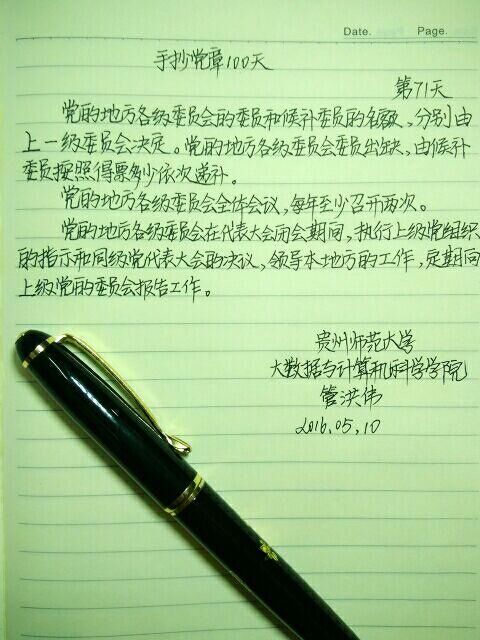 Date. Page.
手抄党章100天
第71天
党的地方各级委员会的委员和候补委员的名额，分别由
上一级委员会决定。党的地方各级委员会委员出缺，由候补
委员按照得票多少依次递补。
党的地方各级委员会全体会议，每年至少召开两次。
党的地方各级委员会在代表大会闭会期间，执行上级党组织
的指示和同级党代表大会的决议，领导本地方的工作，定期向
上级党的委员会报告工作。
贵州师范大学
大数据与计算机科学学院
管洪伟
2016.05.10